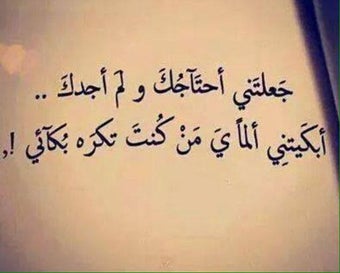 جَعلتَني أحتَآجُكَ و لَم أجدكَ ..
أبكَيتنِي ألماً يَ مَنْ كُنتَ تكرَه بُكآئي !,